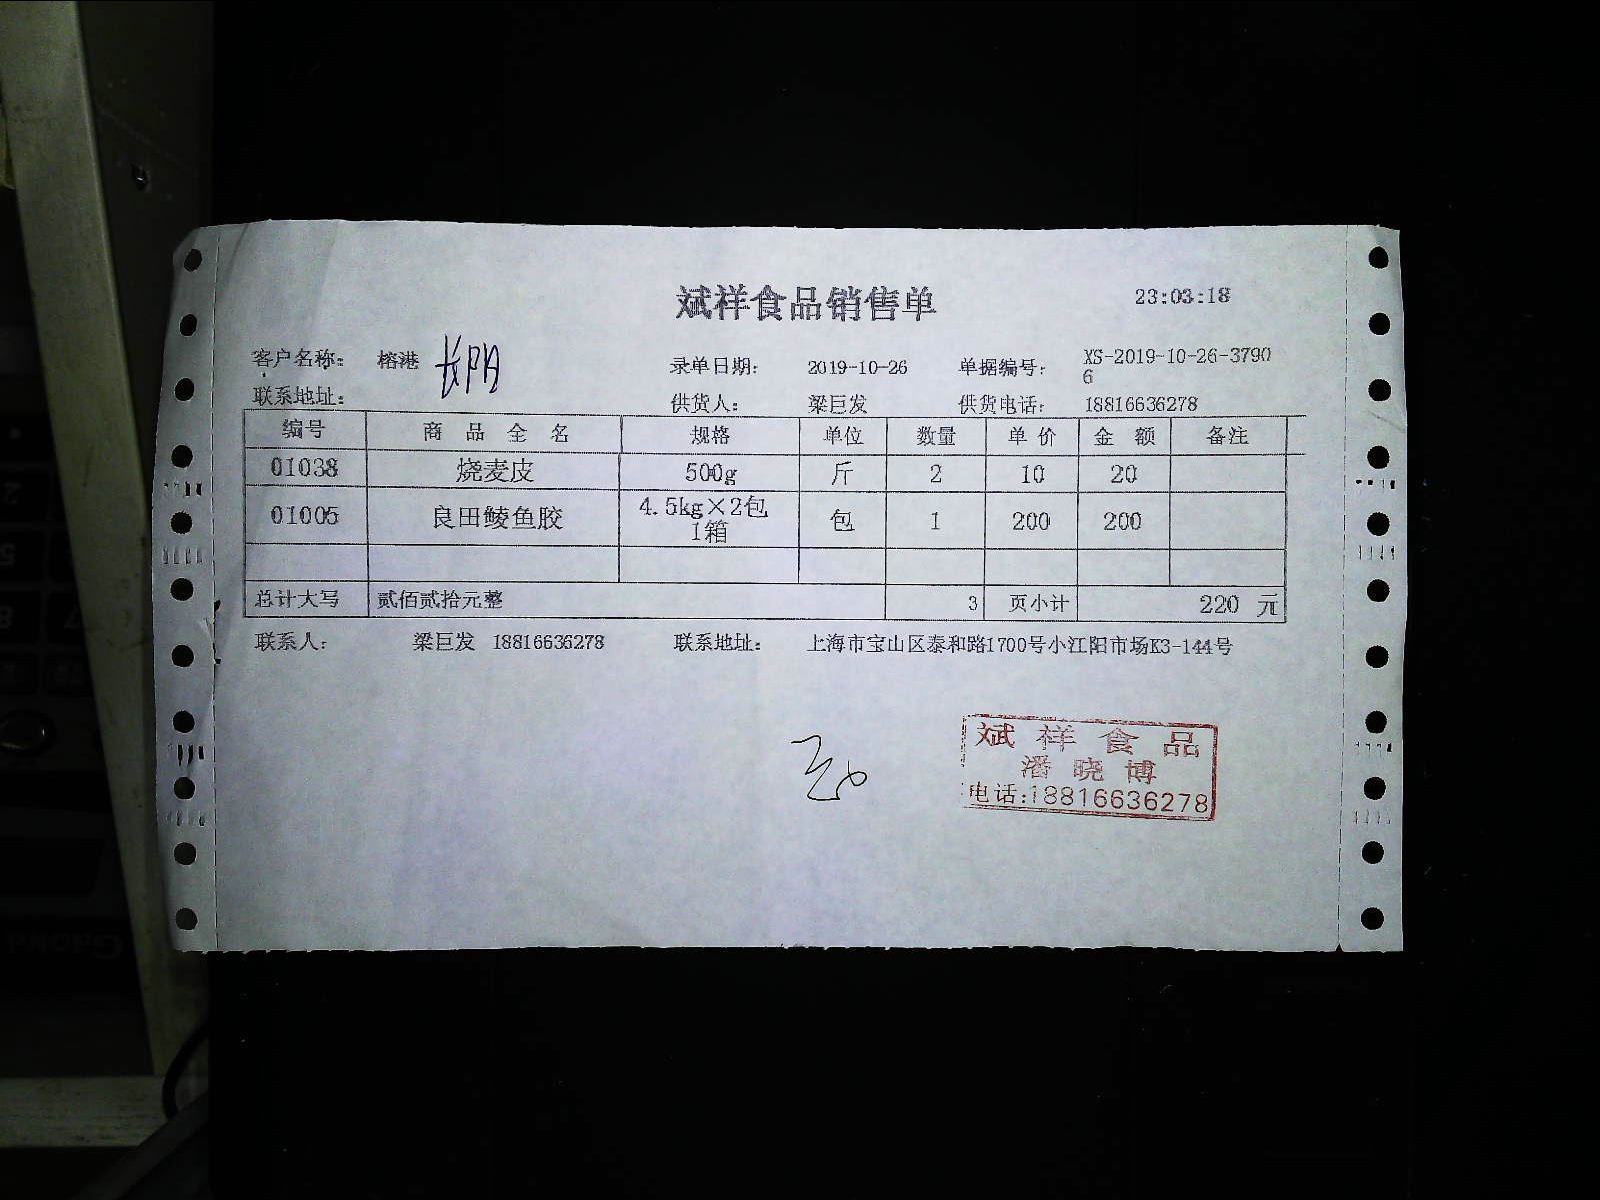 斌祥食品销售单 23:03:18
客户名称: 榕港 长阳 录单日期: 2019-10-26 单据编号: XS-2019-10-26-3790
6
联系地址: 供货人: 梁巨发 供货电话: 18816636278
编号 商品全名 规格 单位 数量 单价 金额 备注
01038 烧麦皮 500g 斤 2 10 20
01005 良田鲮鱼胶 4.5kg×2包 包 1 200 200
1箱
总计大写 贰佰贰拾元整 3 页小计 220 元
联系人: 梁巨发 18816636278 联系地址: 上海市宝山区泰和路1700号小江阳市场K3-144号
斌祥食品
潘晓博
电话:18816636278